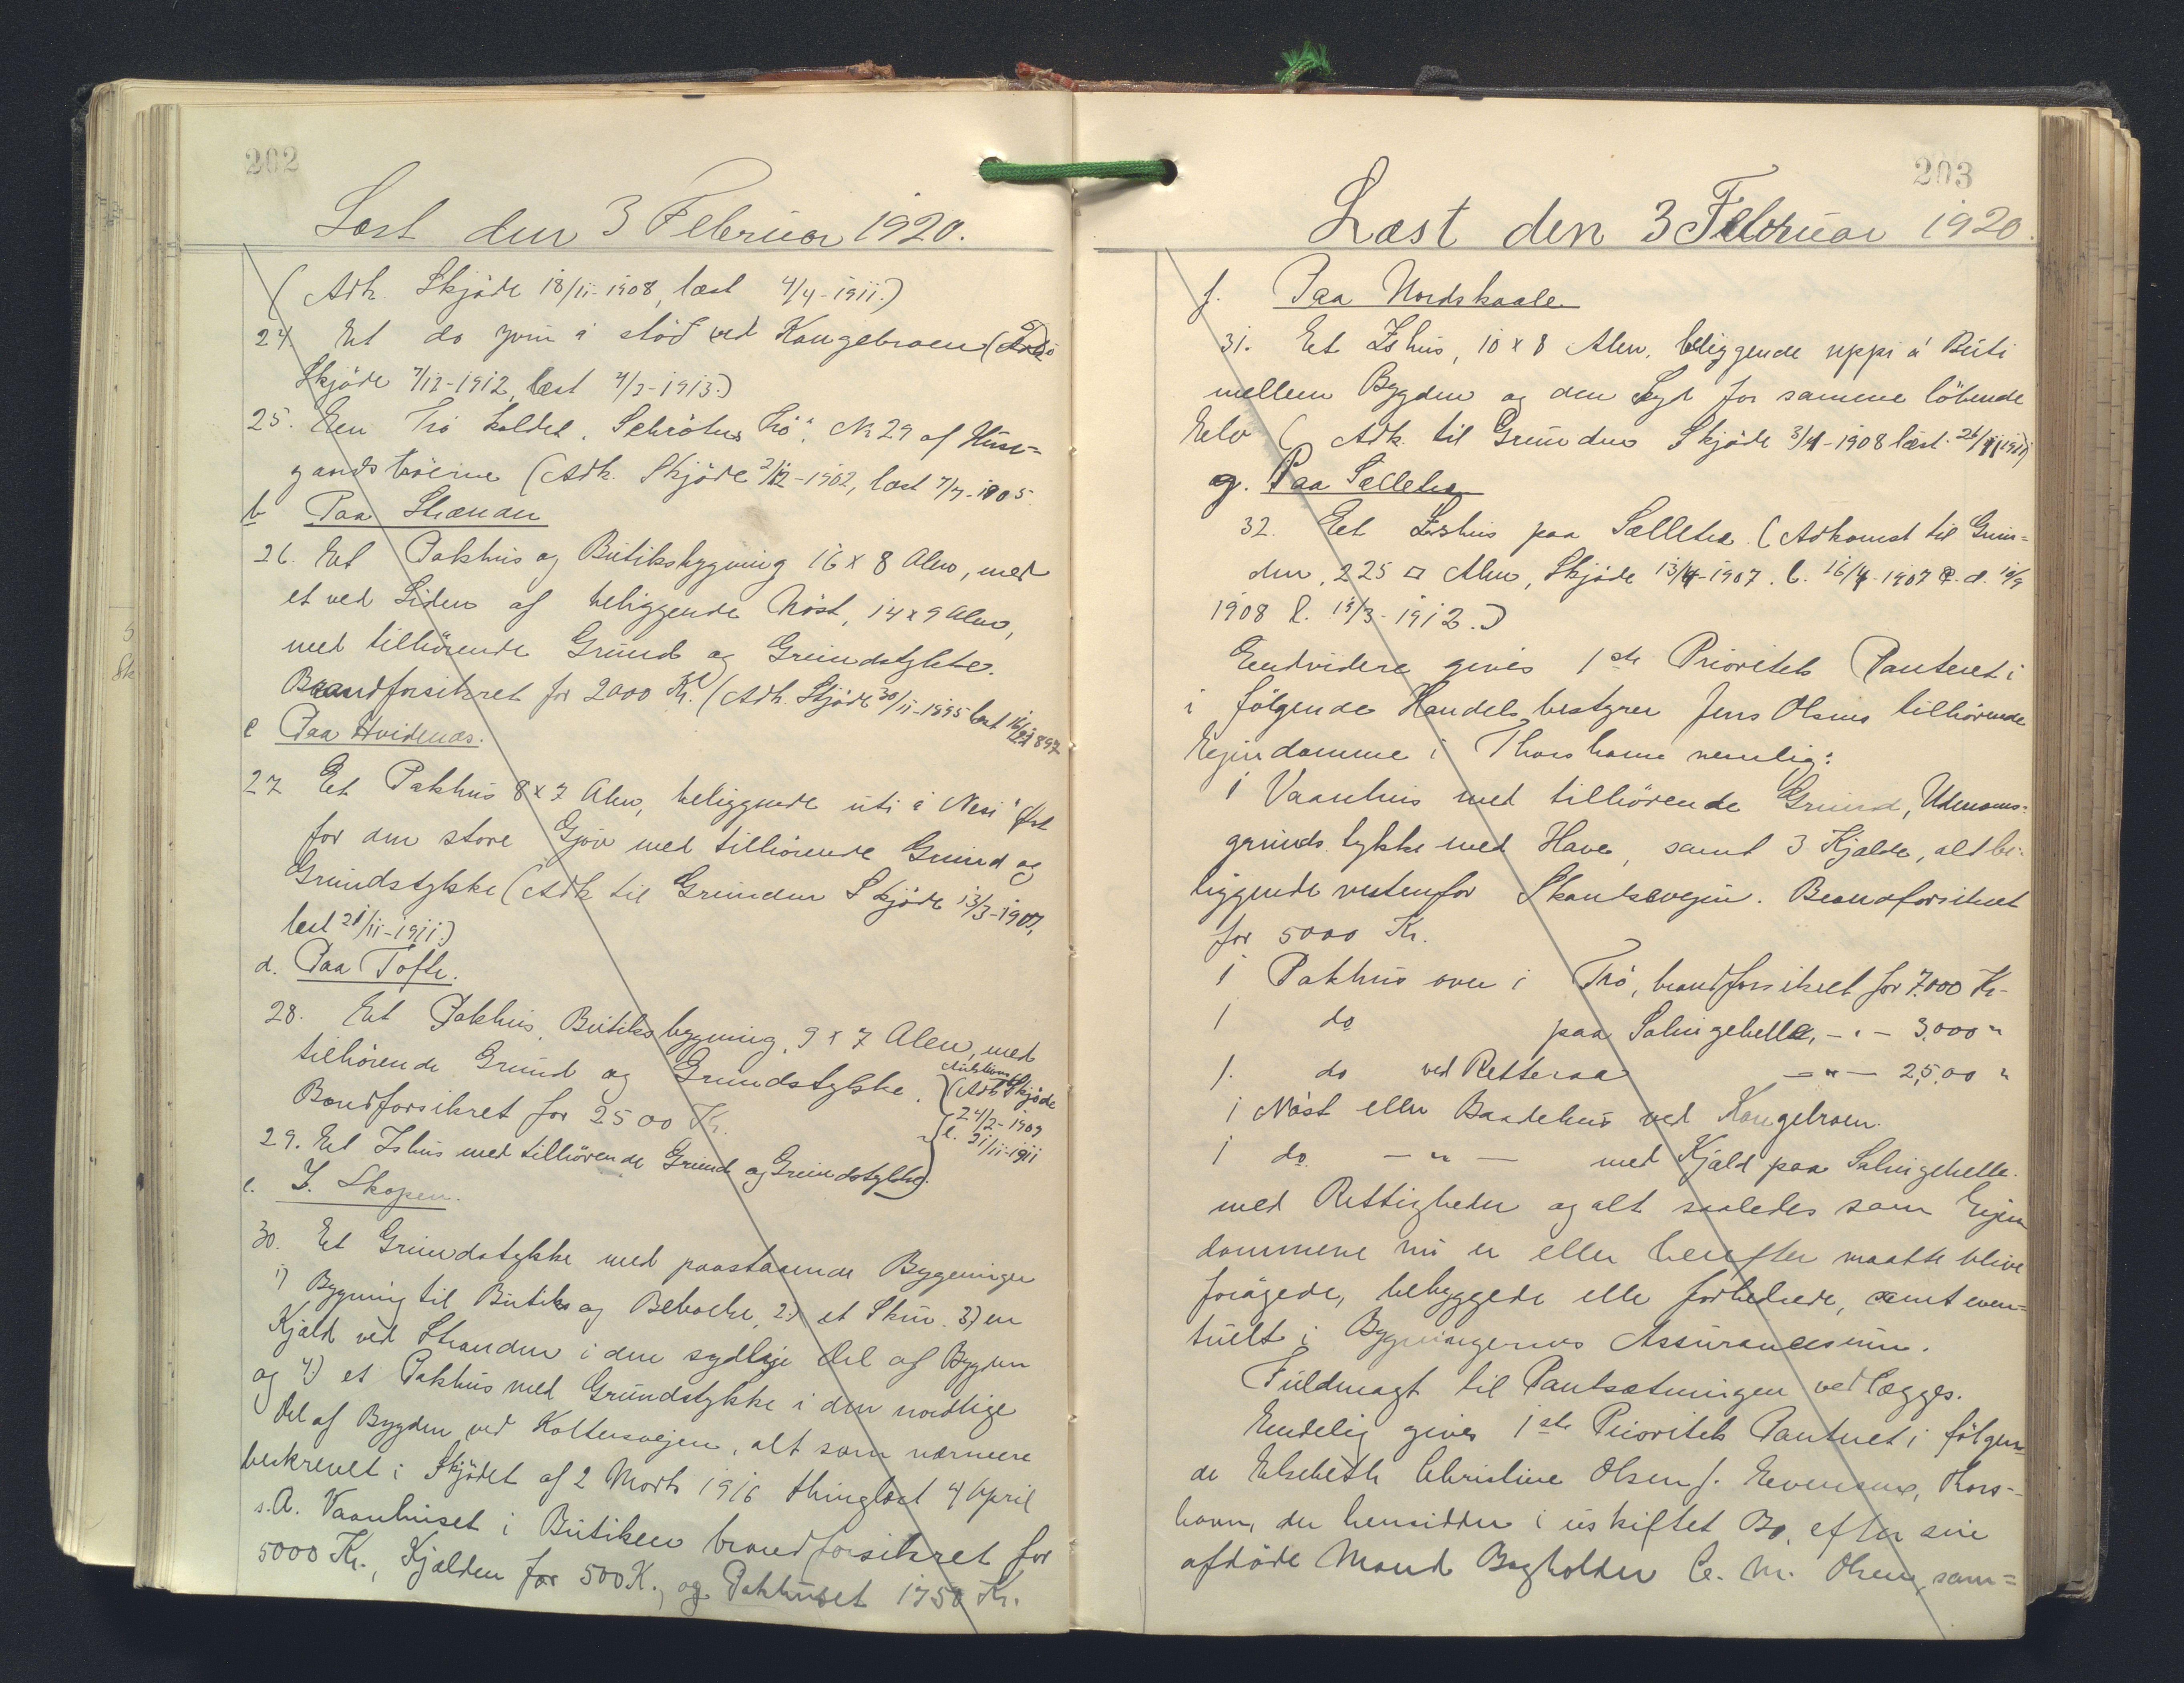 202
Læst den 3 Februar 1920.
(Adk. Skjöde 18/11-1908, læst 4/4-1911.)
24. Et do yvin á stöd ved Kongebroen (
Skjöde 7/12-1912, læst 4/3-1913.)
25. Een Trö kaldet "Schröters Trö", No 29 af Huse-
gaardströerne (Adk. Skjöde 2/12-1902, læst 4/4-1905.
b Paa Strænder
26. Et Pakhus og Butiksbygning 16 x 8 Alen, med
et ved Siden af beliggende Nöst, 14 x 9 Alen,
med tilhörende Grund og Grundstykke.
Brandforsikret for 2000 Kr. (Adk. Skjöde 30/11-1895 læst 1897
c Paa Hvidenæs.
27 Et Pakhus 8 x 7 Alen, beliggende uti á Nesi Öst
for den store Gjov med tilhörende Grund og
Grundstykke (Adk til Grunden Skjöde 13/3-1907,
læst 21/11-1911.)
d. Paa Tofte.
28. Et Pakhus, Butiksbygning, 9 x 7 Alen, med
tilhörende Grund og Grundstykke. (Adk Auktions Skjöde
Brandforsikret for 2500 Kr. 24/2-1909
29. Et Ishus med tilhörende Grund og Grundstykke). l. 21/11-1911
e. I. Skopen.
30. Et Grundstykke med paastaaende Bygninger
1) Bygning til Butik og Beboelse, 2) et Skur. 3) en
Kjæld ved Stranden i den sydlige Del af Bygden
og 4) et Pakhus med Grundstykke i den nordlige
Del af Bygden ved Koltursvejen, alt som nærmere
beskrevet i Skjödet af 2 Marts 1916 thinglæst 4 April
s.A. Vaanhuset i Butiken brandforsikret for
5000 Kr., Kjælden for 500 K., og Pakhuset 1750 Kr.
203
Læst den 3 Februar 1920.
f. Paa Nordskaale
31. Et Ishus, 10 x 8 Alen, beliggende uppi á Buti
mellem Bygden og den Syd for samme löbende
Elv (Adk. til Grunden Skjöde 3/4-1908 læst 1911)
g. Paa Selletræ
32. Eet Ishus paa Selletræ (Adkomst til Grun-
den, 225 □ Alen, Skjöde 13/4-1907. l. 16/4-1907 o. d. 19/9
1908 l. 19/3-1912.)
Endvidere gives 1ste Prioritets Panteret i
i fölgende Handelsbestyrer Jens Olsens tilhörende
Ejendomme i Thorshavn nemlig:
1 Vaanhus med tilhörende Grund, Udenoms-
grundstykke med Have, samt 3 Kjælde, alt be-
liggende vestenfor Skantsevejen. Brandforsikret
for 5000 Kr.
1 Pakhus over i Trö, brandforsikret for 7.000 Kr-
1 do paa Salingehella, - " - 3.000 "
1. do ved Retteraa - " - 2,500 "
1 Nöst eller Baadehus ved Kongebroen.
1 do. - " - med Kjæld paa Salingehelle.
med Rettigheder og alt saaledes som Ejen
dommene nu er eller herefter maatte blive
forögede, bebyggede elle forbedrede, samt even-
tuelt i Bygningernes Assurancesum.
Fuldmagt til Pantsætningen vedlægges.
Endelig gives 1ste Prioritets Panteret i fölgen
de Elsebeth Christine Olsen f. Evensens, Thors-
havn, der hensidder i uskiftet Bo, efter sin
afdöde Mand Bogholder C. M. Olsen, sam=